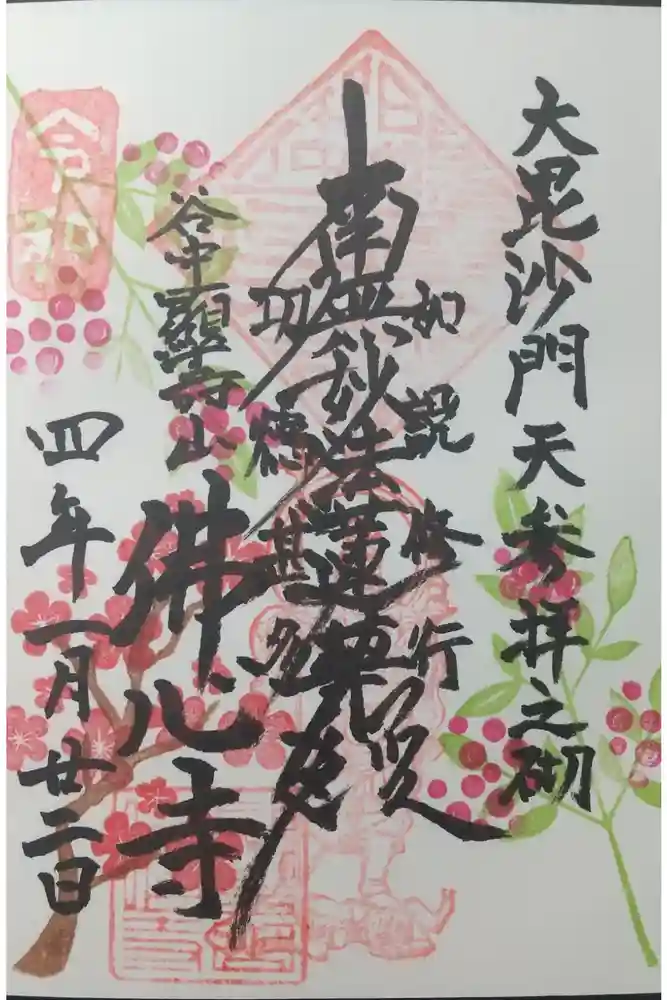 大毘沙門天参拝之砌
如説修行
南無妙法蓮華経
功徳甚多
谷中顯寿山
佛心寺
令和
四年一月廿二日